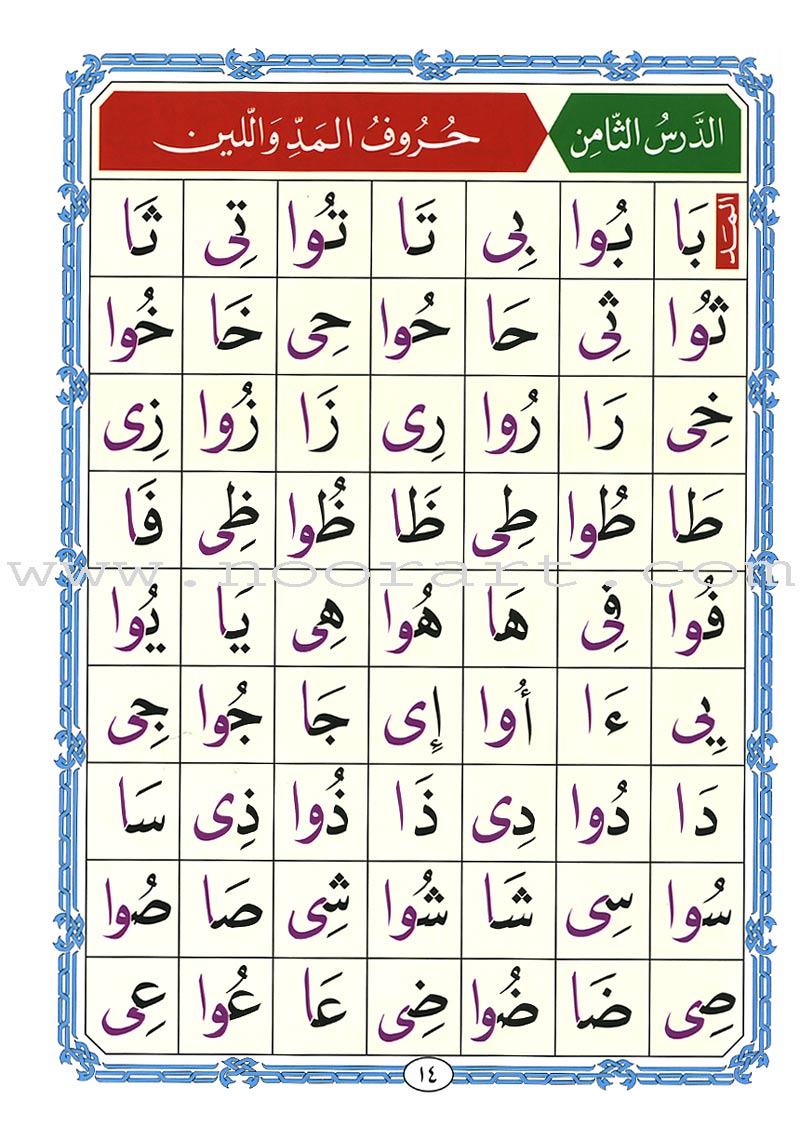 الدَّرسُ الثَّامِن حُرُوفُ المَدِّ وَاللّين
المَد
بَا بُوا بِى تَا تُوا تِى ثَا
ثُوا ثِى حَا حُوا حِى خَا خُوا
خِى رَا رُوا رِى زَا زُوا زِى
طَا طُوا طِى ظَا ظُوا ظِى فَا
www.noorart.com
فُوا فِى هَا هُوا هِى يَا يُوا
يِى ءَا أُوا إِى جَا جُوا جِى
دَا دُوا دِى ذَا ذُوا ذِى سَا
سُوا سِى شَا شُوا شِى صَا صُوا
صِى ضَا ضُوا ضِى عَا عُوا عِى
١٤